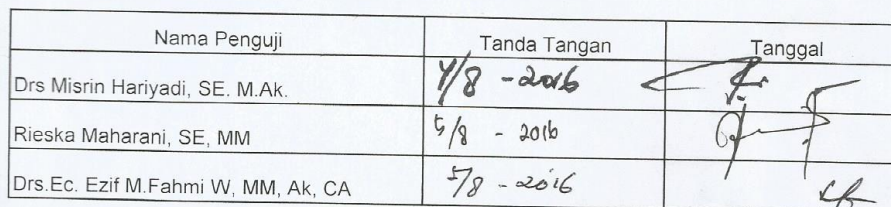 Nama Penguji Tanda Tangan Tanggal
Drs Misrin Hariyadi, SE. M.Ak. 4/8 - 2016
Rieska Maharani, SE, MM 5/8 - 2016
Drs.Ec. Ezif M.Fahmi W, MM, Ak, CA 5/8 - 2016